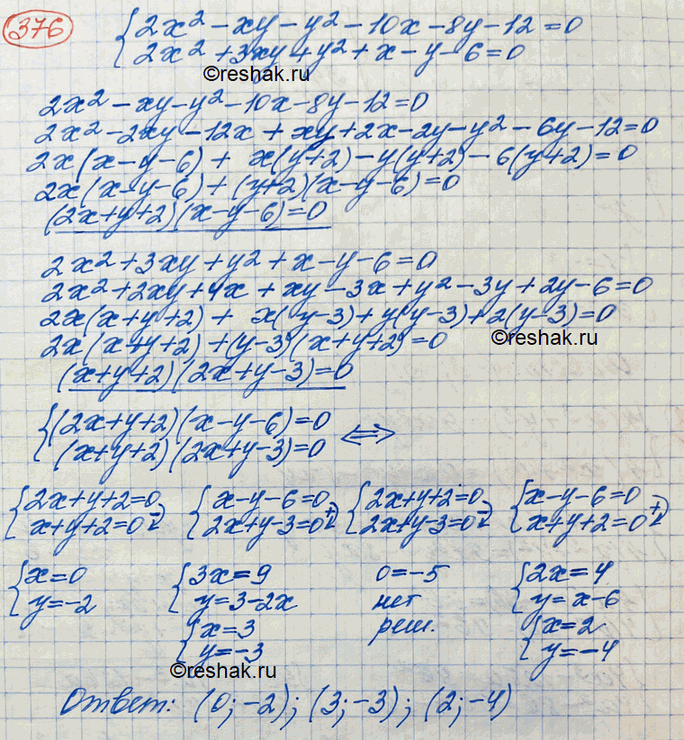 376
{2x² - xy - y² - 10x - 8y - 12 = 0
{2x² + 3xy + y² + x - y - 6 = 0
©reshak.ru
2x² - xy - y² - 10x - 8y - 12 = 0
2x² - 2xy - 12x + xy + 2x - 2y - y² - 6y - 12 = 0
2x(x - y - 6) + x(y + 2) - y(y + 2) - 6(y + 2) = 0
2x(x - y - 6) + (y + 2)(x - y - 6) = 0
(2x + y + 2)(x - y - 6) = 0
2x² + 3xy + y² + x - y - 6 = 0
2x² + 2xy + 4x + xy - 3x + y² - 3y + 2y - 6 = 0
2x(x + y + 2) + x(y - 3) + y(y - 3) + 2(y - 3) = 0
©reshak.ru
2x(x + y + 2) + (y - 3)(x + y + 2) = 0
(x + y + 2)(2x + y - 3) = 0
{(2x + y + 2)(x - y - 6) = 0
{(x + y + 2)(2x + y - 3) = 0 ⇔
{2x + y + 2 = 0 {x - y - 6 = 0 {2x + y + 2 = 0 {x - y - 6 = 0
{x + y + 2 = 0 - {2x + y - 3 = 0 + {2x + y - 3 = 0 - {x + y + 2 = 0 +
{x = 0 {3x = 9 0 = -5 {2x = 4
{y = -2 {y = 3 - 2x нет {y = x - 6
{x = 3 реш. {x = 2
{y = -3 {y = -4
©reshak.ru
Ответ: (0; -2); (3; -3); (2; -4)